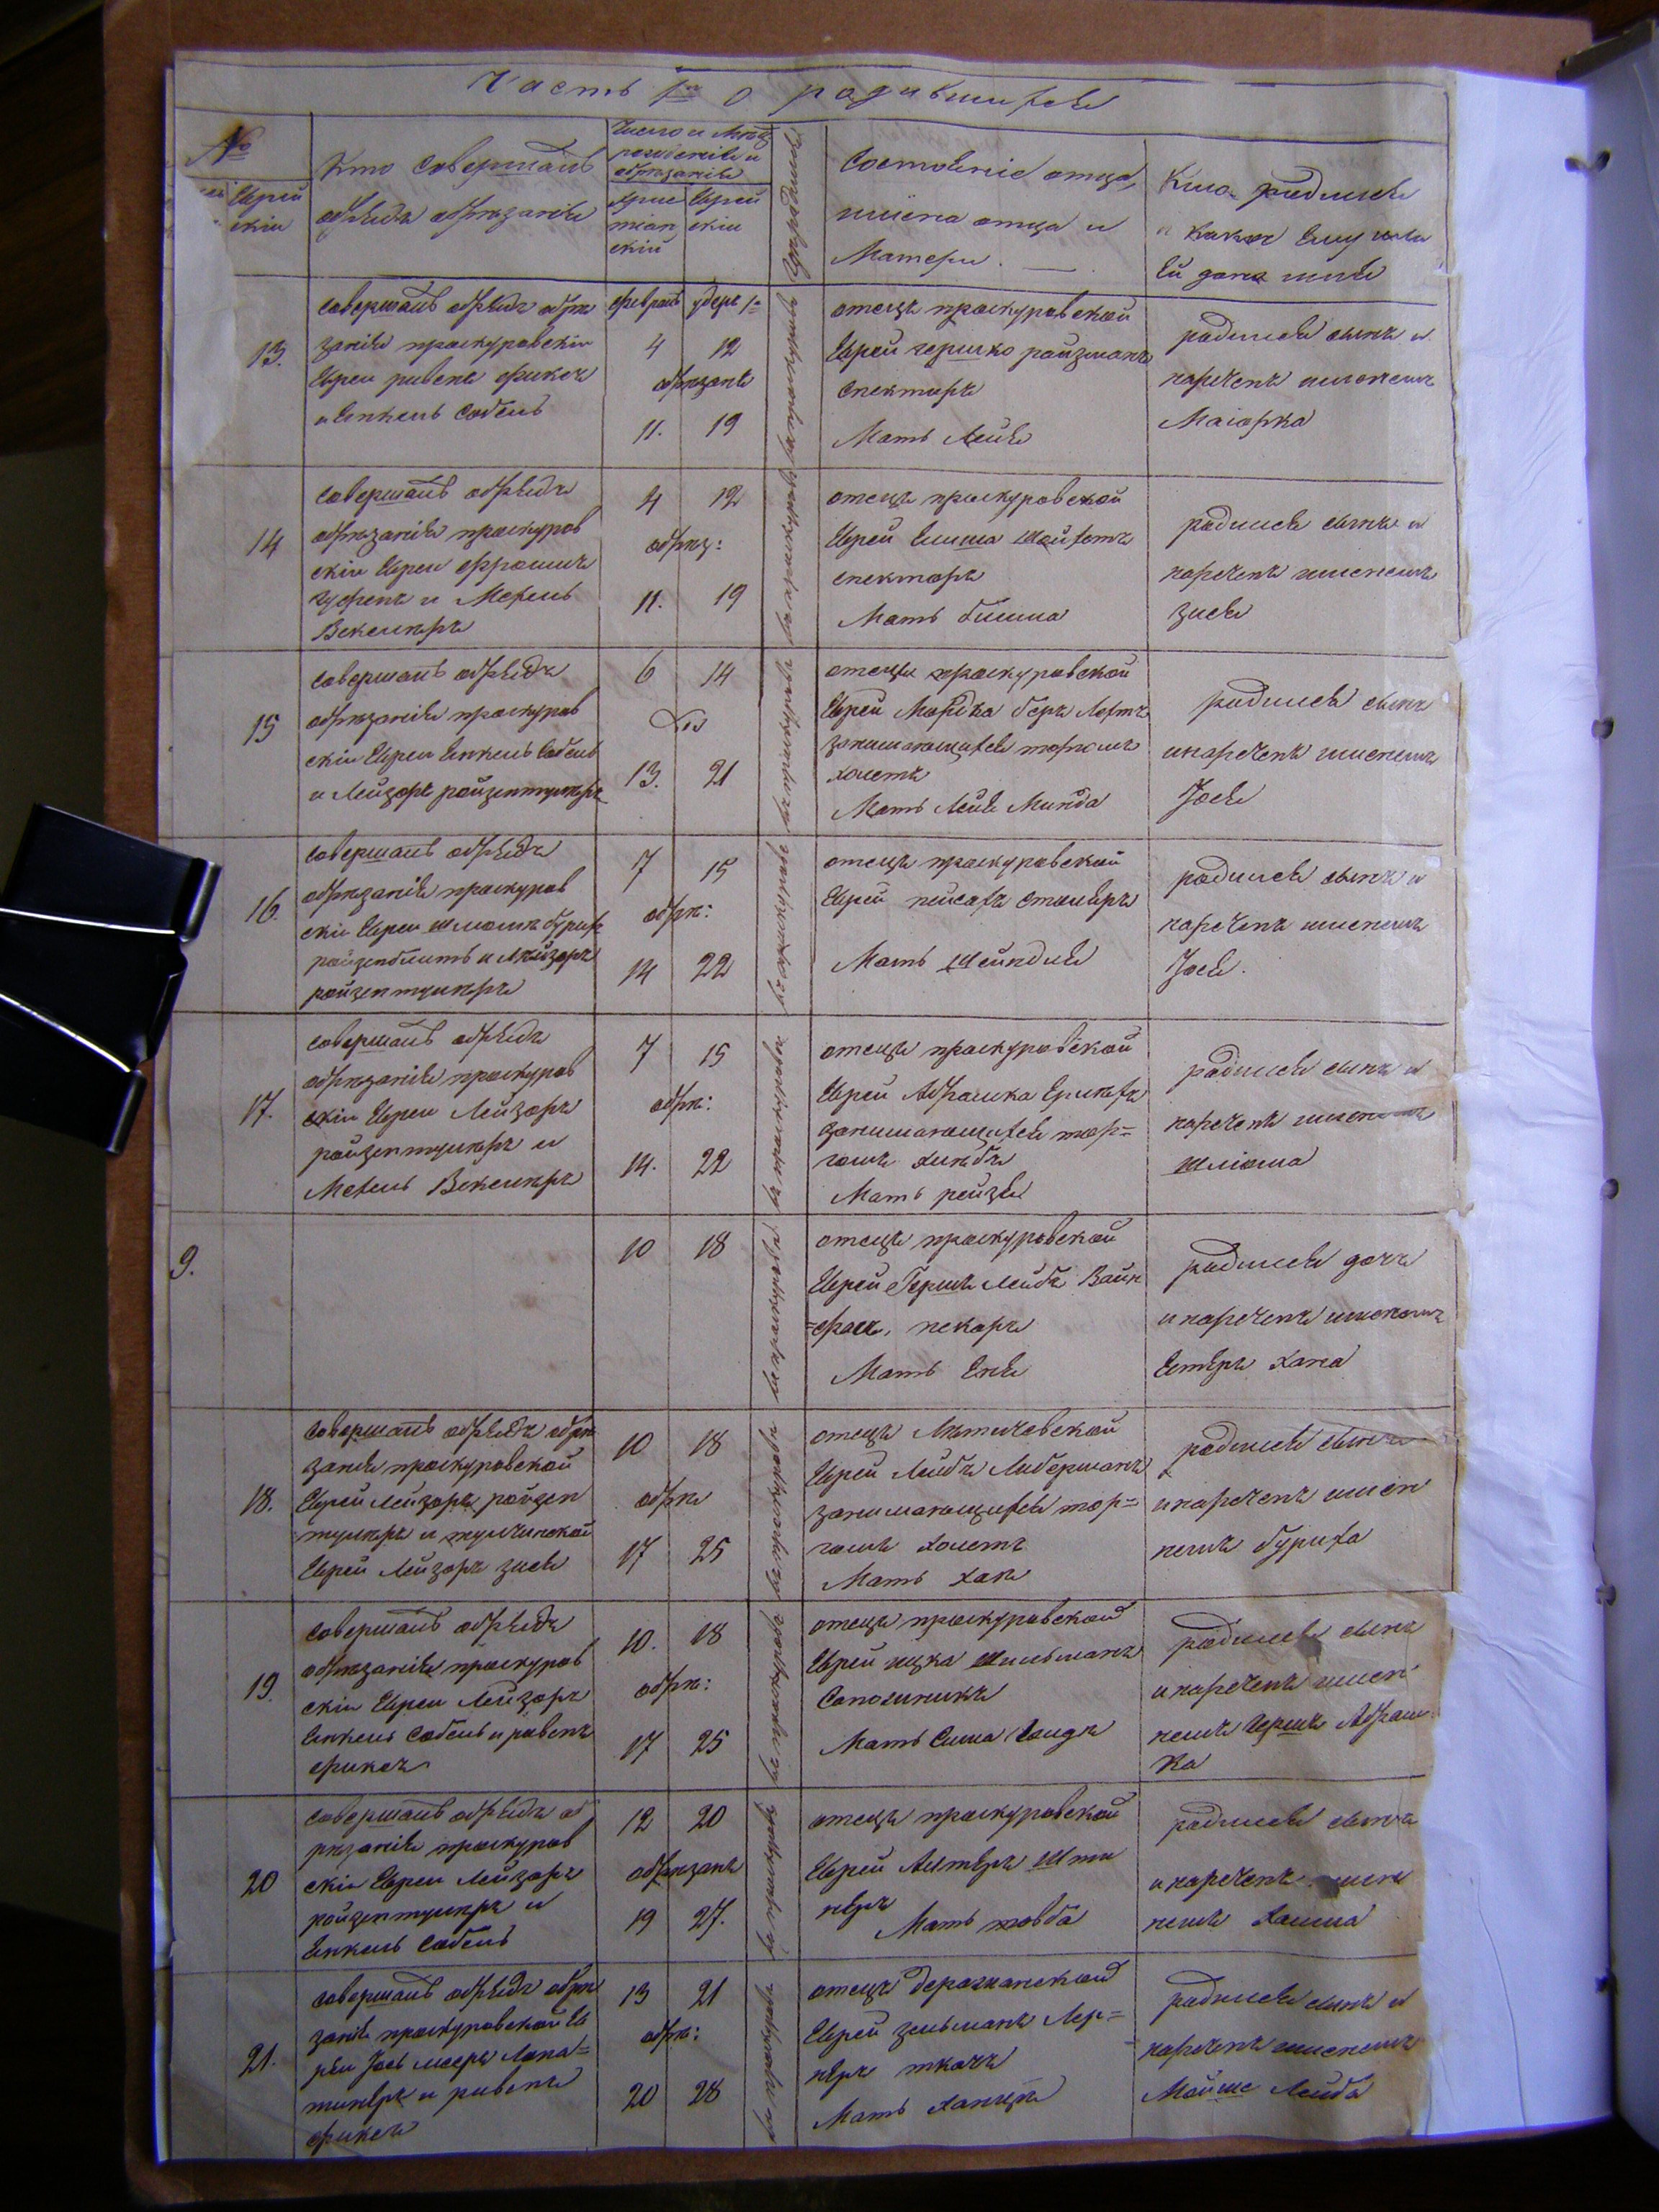 Часть 1ая о родившихся
№
Еврей
скіи
Кто совершалъ
обрядъ обрѣзанія
Число и мѣсяцъ
рожденія и
обрѣзанія
Христ
іан
скій
Еврей
скіи
Гдѣ родился
Состояніе отца,
имена отца и
Матери.
Кто родился
и какое ему или
ей дано имя
13.
совершалъ обрядъ обрѣ
занія проскуровскіи
Евреи рувенъ фиксъ
и Енкель Собель
февраль
адеръ 1й
4 12
обрѣзанъ
11. 19
въ проскуровѣ
отецъ проскуровской
Еврей гершко ройзманъ
спекторъ
Мать Лейя
родился сынъ и
нареченъ именемъ
Маіорка
14
совершалъ обрядъ
обрѣзанія проскуров
скіи Евреи
и Мехель
Векслеръ
4 12
обрѣз:
11. 19
въ проскуровѣ
отецъ проскуровской
Еврей
спекторъ
Мать бимма
родился сынъ и
нареченъ именемъ
зися
15
совершалъ обрядъ
обрѣзанія проскуров
скіи Евреи Енкель Собель
и Лейзоръ ройзентулеръ
6 14
13. 21
въ проскуровѣ
отецъ проскуровской
Еврей Мордка беръ
занимающійся торгомъ
холстъ
Мать Лейя Минда
родился сынъ
и нареченъ именемъ
Іося
16.
совершалъ обрядъ
обрѣзанія проскуров
скіи Евреи шліома бурих
ройзенблитъ и Лейзоръ
ройзентулеръ
7 15
обрѣ:
14 22
въ проскуровѣ
отецъ проскуровской
Еврей пейсахъ столяръ
Мать Шейндля
родился сынъ и
нареченъ именемъ
Іося.
17.
совершалъ обрядъ
обрѣзанія проскуров
скіи Евреи Лейзоръ
ройзентулеръ и
Мехель Векслеръ
7 15
обрѣ:
14. 22
въ проскуровѣ
отецъ проскуровской
Еврей Абрамка
занимающійся тор=
гомъ хлѣба
Мать рейзя
родился сынъ и
нареченъ именемъ
шліома
9.
10 18
въ проскуровѣ
отецъ проскуровской
Еврей Гершъ Лейбъ Вайн
пекаръ
Мать Еня
родился дочь
и нареченъ именемъ
Естеръ хана
18.
совершалъ обрядъ обрѣ
занія проскуровской
Еврей Лейзоръ ройзен
тулеръ и тульчинской
Еврей Лейзоръ зися
10 18
обрѣ
17 25
въ проскуровѣ
отецъ Летичевской
Еврей Лейбъ Либерманъ
занимающійся тор=
гомъ холстъ
Мать хая
родился сынъ
и нареченъ имен
немъ буриха
19.
совершалъ обрядъ
обрѣзанія проскуров
скіи Евреи Лейзоръ
Енкель Собель и рувенъ
фиксъ
10. 18
обрѣ:
17 25
въ проскуровѣ
отецъ проскуровской
Еврей ицка Шильманъ
Сапожникъ
Мать Сима
родился сынъ
и нареченъ имен
немъ Гершъ Абрам
ка
20
совершалъ обрядъ об
рѣзанія проскуров
скіи Евреи Лейзоръ
ройзентулеръ и
Енкель Собель
12 20
обрѣзанъ
19 27.
въ проскуровѣ
отецъ проскуровской
Еврей Алтеръ Шти
неръ
Мать товба
родился сынъ
и нареченъ имен
немъ Хаима
21.
совершалъ обрядъ обрѣ
занія проскуровской Ев
реи Іось мееръ Лопа=
тинеръ и рувенъ
фиксъ
13 21
обрѣ:
20 28
въ проскуровѣ
отецъ деражнянской
Еврей зельманъ Лер=
неръ ткачъ
Мать ханця
родился сынъ и
нареченъ именемъ
Мойше Лейба